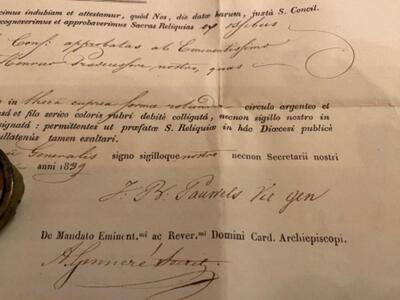 cimus indubiam et attestamur, quòd Nos, die datæ harum, juxtà S. Concil.
cognoverimus et approbaverimus Sacras Reliquias ex Ossibus
Conf. approbatas ab Eminentissimo
Prædecessore nostro, quas
in thecâ cuprea formæ rotundæ circulo argenteo et
sâ et filo serico coloris rubri debitè colligatâ, necnon sigillo nostro in
signatâ: permittentes ut præfatæ S. Reliquiæ in hâc Diœcesi publicè
ullatenùs tamen exaltari.
Generalis signo sigilloque nostro necnon Secretarii nostri
anni 1839
J. B. Pauwels Vic gen
De Mandato Eminent.mi ac Rever.mi Domini Card. Archiepiscopi.